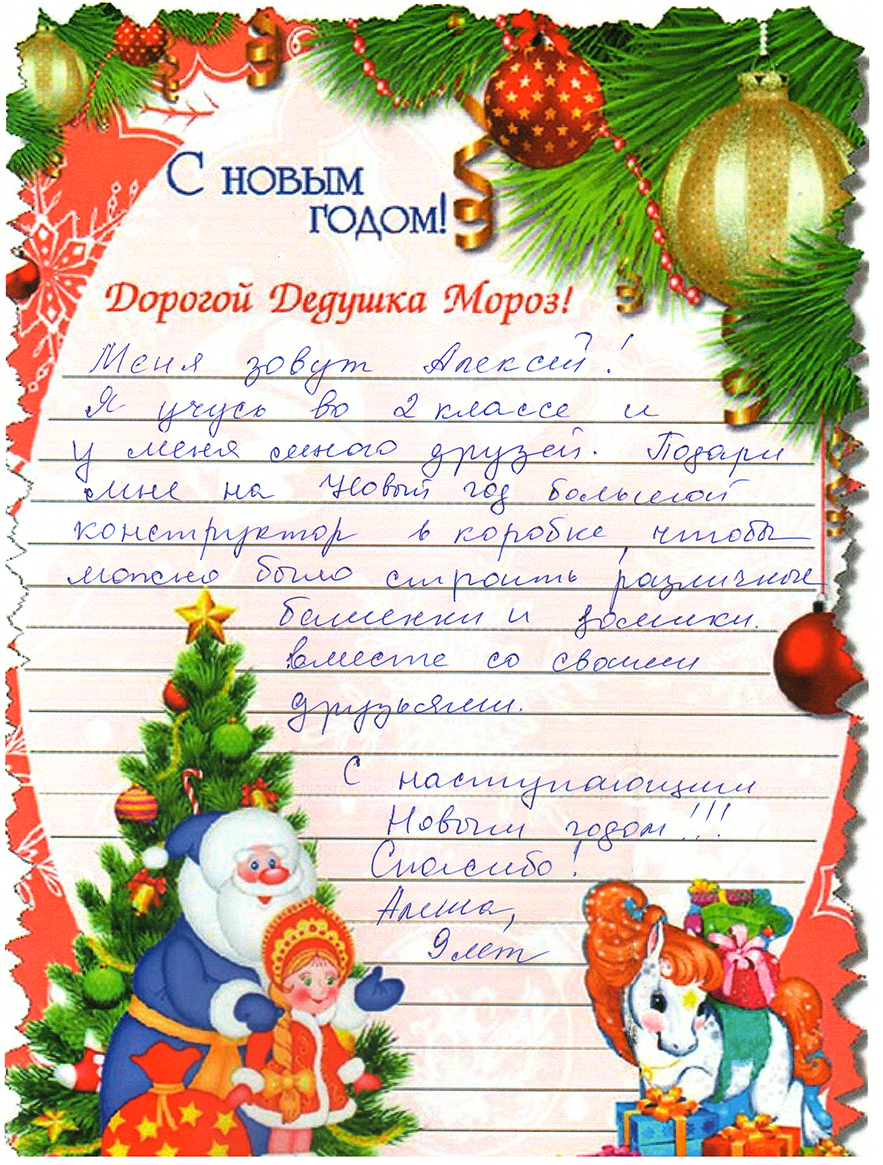 С новым
годом!
Дорогой Дедушка Мороз!
Меня зовут Алексей!
Я учусь во 2 классе и
у меня много друзей. Подари
мне на Новый год большой
конструктор в коробке, чтобы
можно было строить различные
башенки и домики.
вместе со своими
друзьями.
С наступающим
Новым годом!!!
Спасибо!
Алеша,
9 лет